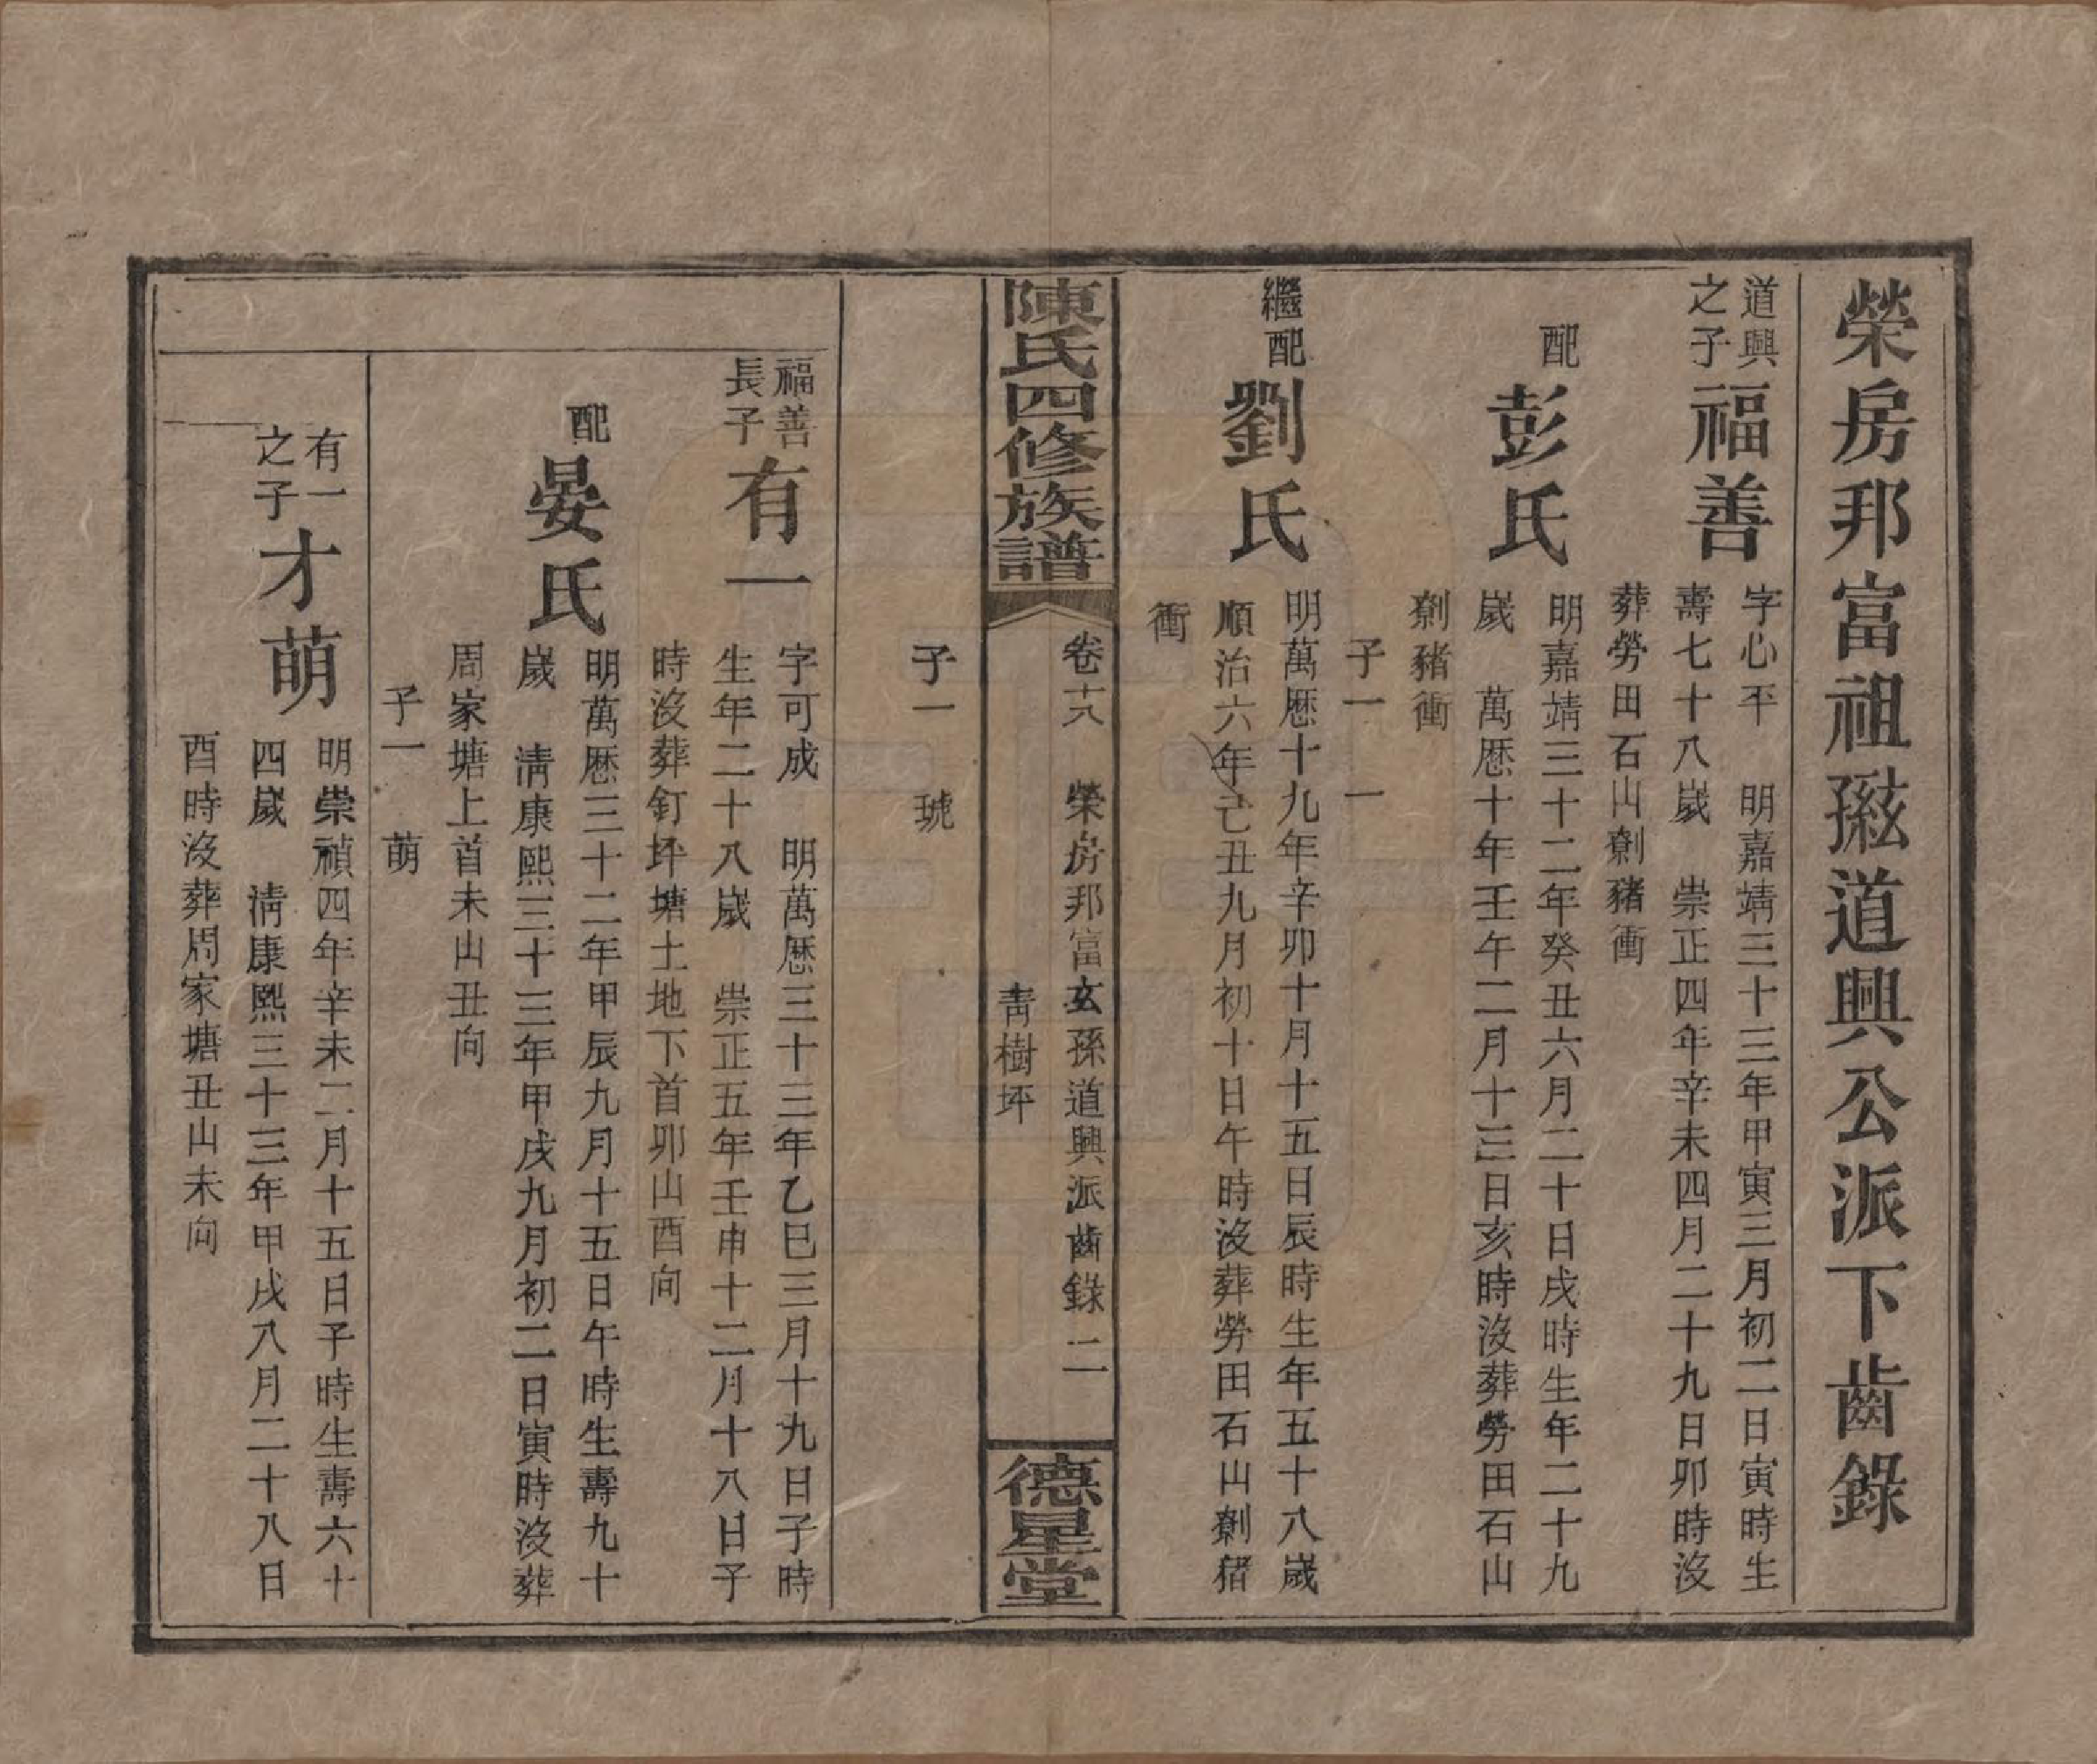 榮房邦富祖孫道興公派下齒錄
道興
之子
福善
字心平　明嘉靖三十三年甲寅三月初二日寅時生
壽七十八歲　崇正四年辛未四月二十九日卯時沒
葬勞田石山劁豬衝
配
彭氏
明嘉靖三十二年癸丑六月二十日戌時生年二十九
歲　萬厯十年壬午二月十三日亥時沒葬勞田石山
劁豬衝
子一　一
繼配
劉氏
明萬厯十九年辛卯十月十五日辰時生年五十八歲
順治六年己丑九月初十日午時沒葬勞田石山劁豬
衝
陳氏四修族譜
卷十八　榮房邦富玄孫道興派齒錄　二
青樹坪
德星堂
子一　琥
福善
長子
有一
字可成　明萬厯三十三年乙巳三月十九日子時
生年二十八歲　崇正五年壬申十二月十八日子
時沒葬釘坪塘土地下首卯山酉向
配
晏氏
明萬厯三十二年甲辰九月十五日午時生壽九十
歲　清康熙三十三年甲戌九月初二日寅時沒葬
周家塘上首未山丑向
子一　萌
有一
之子
才萌
明崇禎四年辛未二月十五日子時生壽六十
四歲　清康熙三十三年甲戌八月二十八日
酉時沒葬周家塘丑山未向